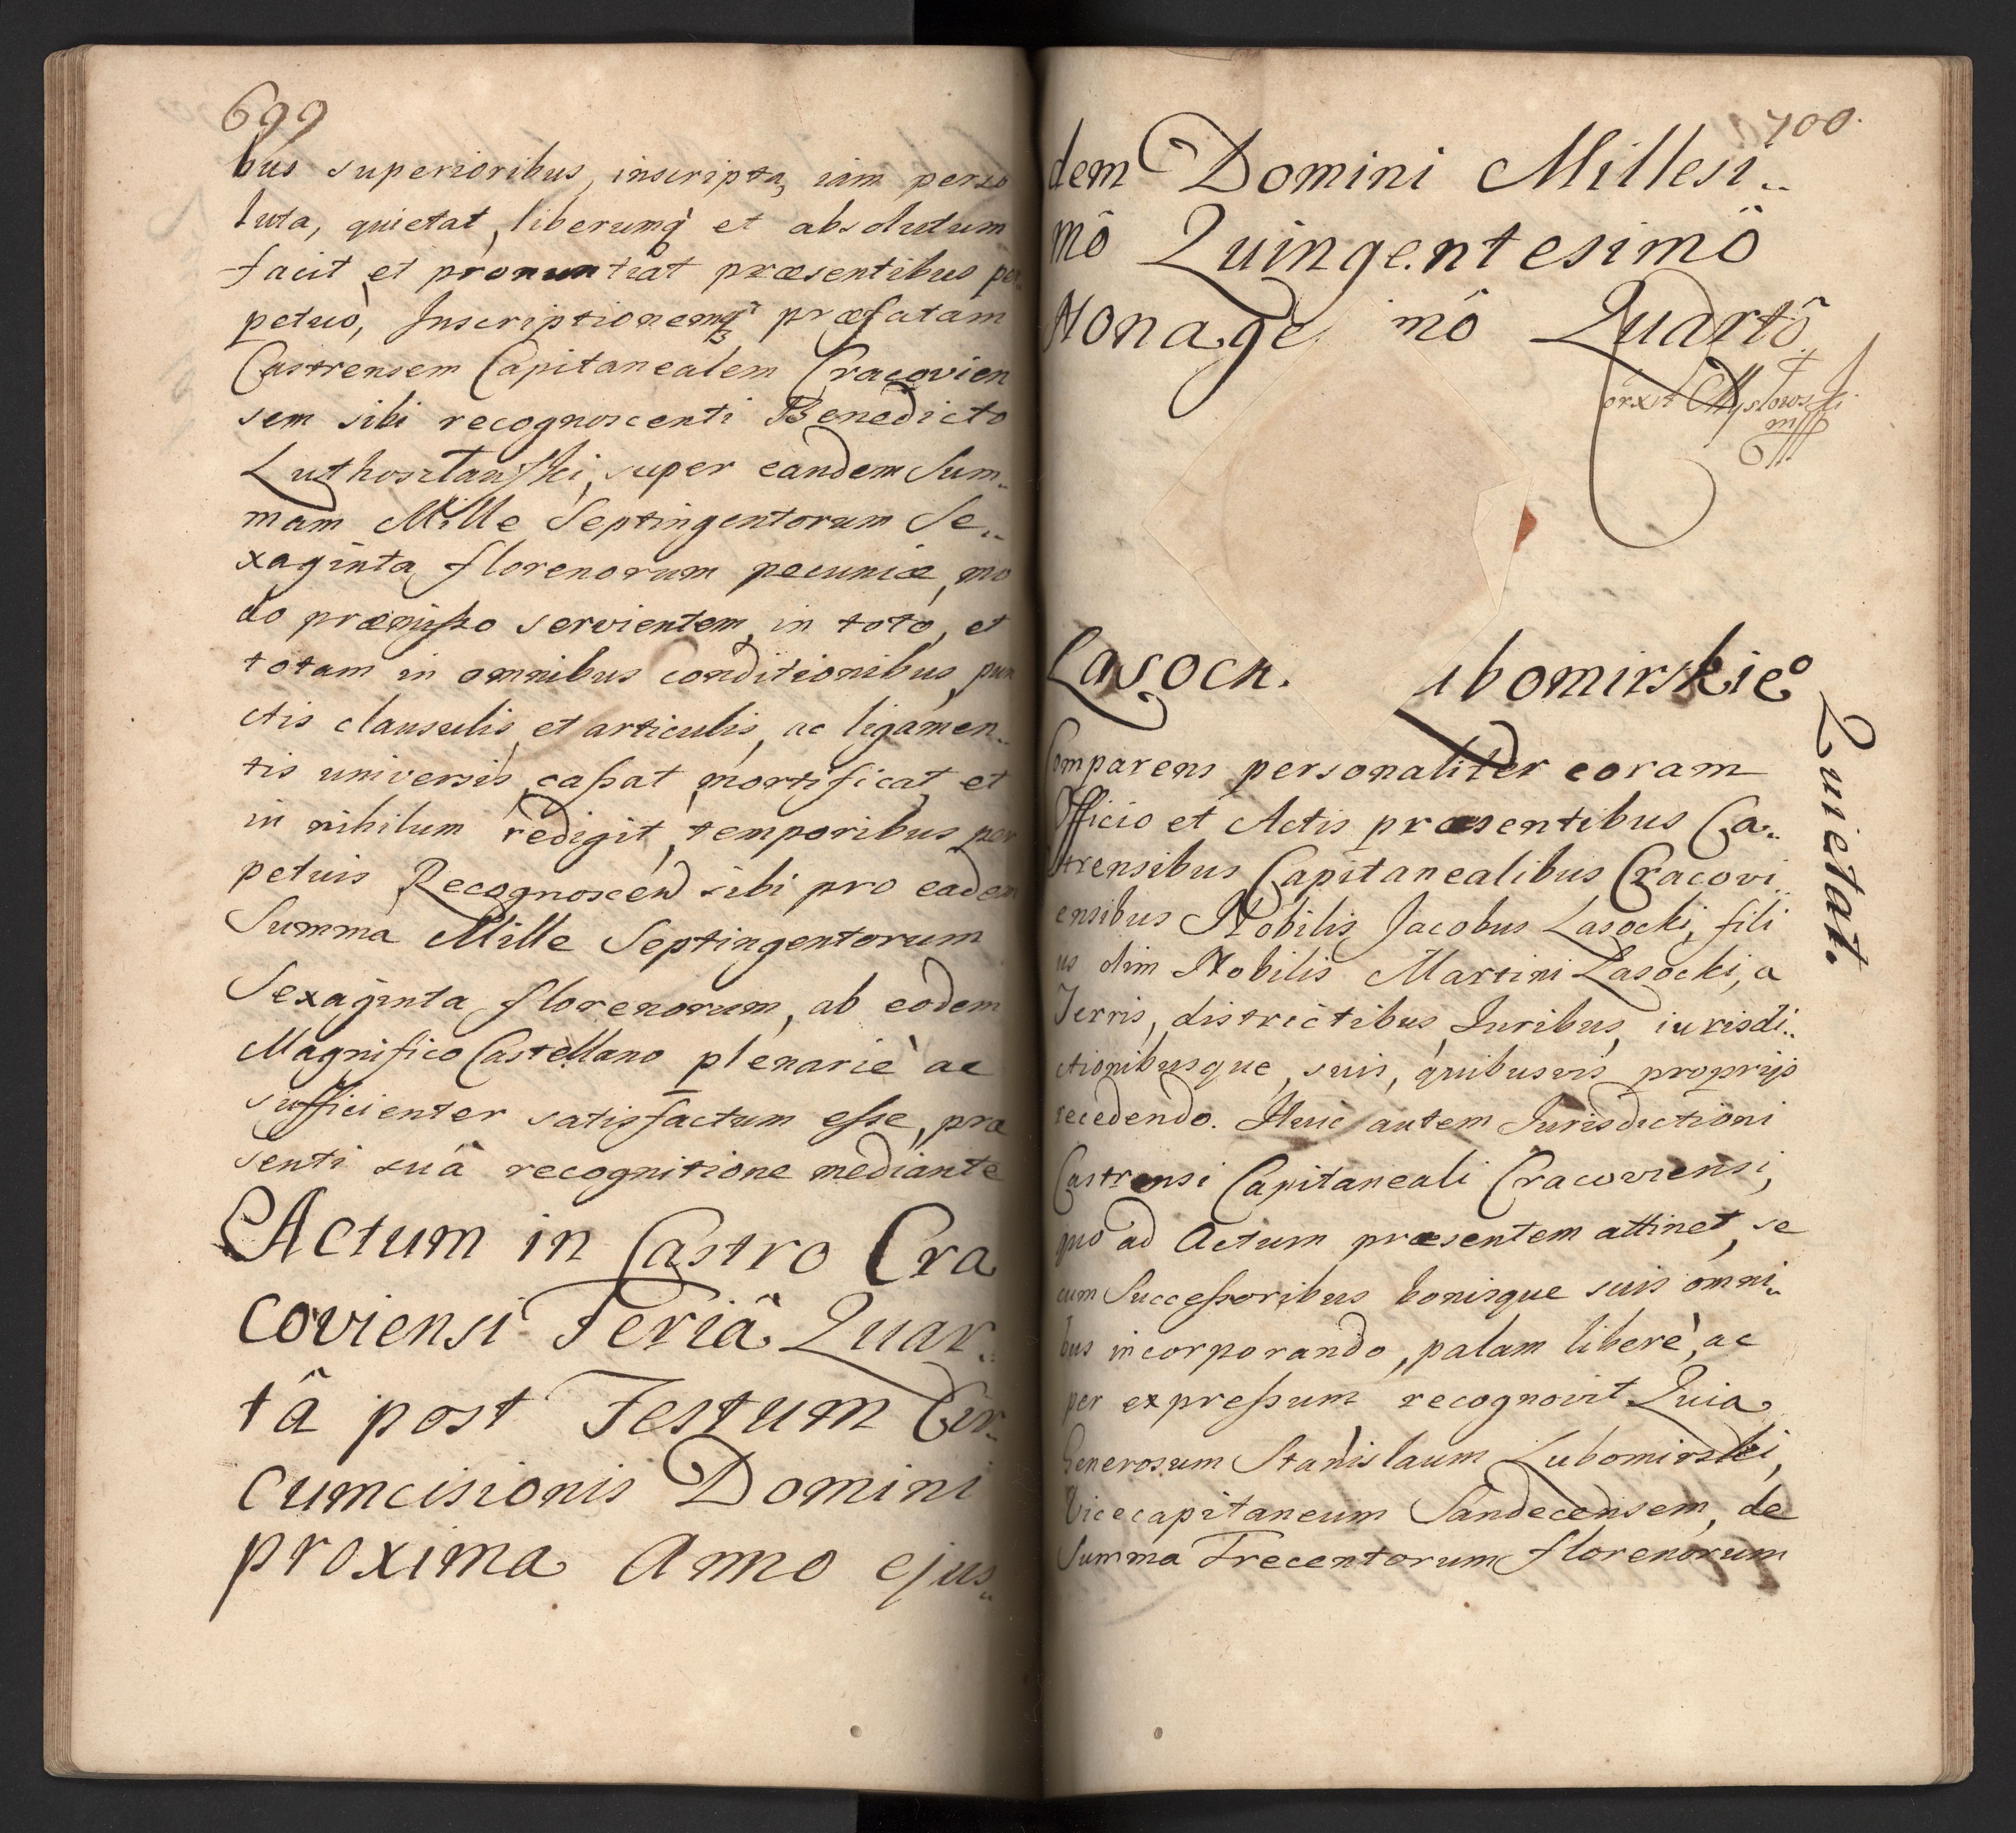 699
bus superioribus, inscripta, iam perso
luta, quietat, liberumq̀ et absolutum
facit et pronuntiat præsentibus per..
petuò, Inscriptionemq̀ præfatam
Castrensem Capitanealem Cracovien
sem sibi recognoscenti Benedicto
super eandem Sum..
mam Mille Septingentorum Se..
xaginta florenorum pecuniæ, mo
do præmisso servientem, in toto, et
totam in omnibus conditionibus, pun
ctis clausulis, et articulis, ac ligamen..
tis universis, cassat, mortificat, et
in nihilum redigit, temporibus per
petuis Recognoscend sibi pro eadem
Summa Mille Septingentorum
Sexaginta florenorum, ab eodem
Magnifico Castellano plenariè ac
sufficienter satisfactum esse, præ
senti suâ recognitione mediante
Actum in Castro Cra
coviensi Feriâ Quar..
tâ post Festum Cir..
cumcisionis Domini
proxima Anno ejus..
700.
dem Domini Millesi..
mô Quingentesimô
Nonage mô Quartô
Lasock. ubomirskieo
Quietat.
Comparens personaliter coram
Officio et Actis præsentibus Ca..
strensibus Capitanealibus Cracovi..
ensibus Nobilis Jacobus Lasocki, fili
us olim Nobilis Martini Lasocki, a
Terris, districtibus, Iuribus, iurisdi..
ctionibusque, suis, quibusvis proprijs
recedendo. Huic autem Iurisdictioni
Castrensi Capitaneali Cracoviensi,
quo ad Actum præsentem attinet, se
cum Successoribus bonisque suis omni..
bus incorporando, palam liberè, ac
per expressum recognovit Quia
Generosum Stanislaum Lubomirski,
Vicecapitaneum Sandecensem, de
Summa Trecentorum florenorum